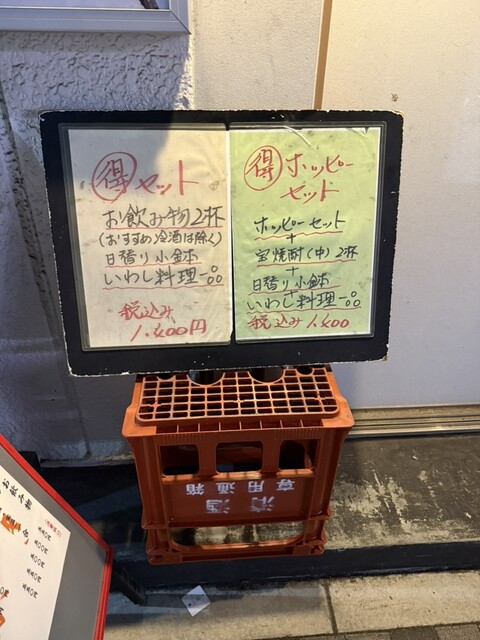 得 セット
お飲み物2杯
(おすすめ冷酒は除く)
日替り小鉢
いわし料理一品
税込み
1,400円
得 ホッピー
セット
ホッピーセット
+
宝焼酎(中)2杯
+
日替り小鉢
+
いわし料理一品
税込み 1,400
清酒
専用通箱